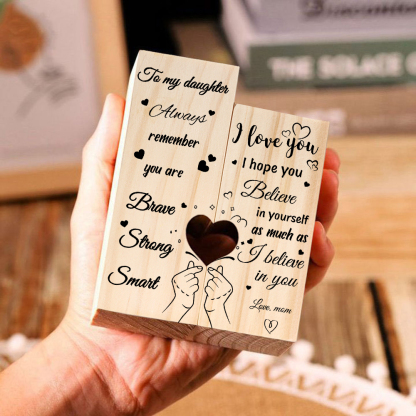 To my daughter
Always
remember
you are
Brave
Strong
Smart
I love you
I hope you
Believe
in yourself
as much as
I believe
in you
Love, mom
THE SOLACE O